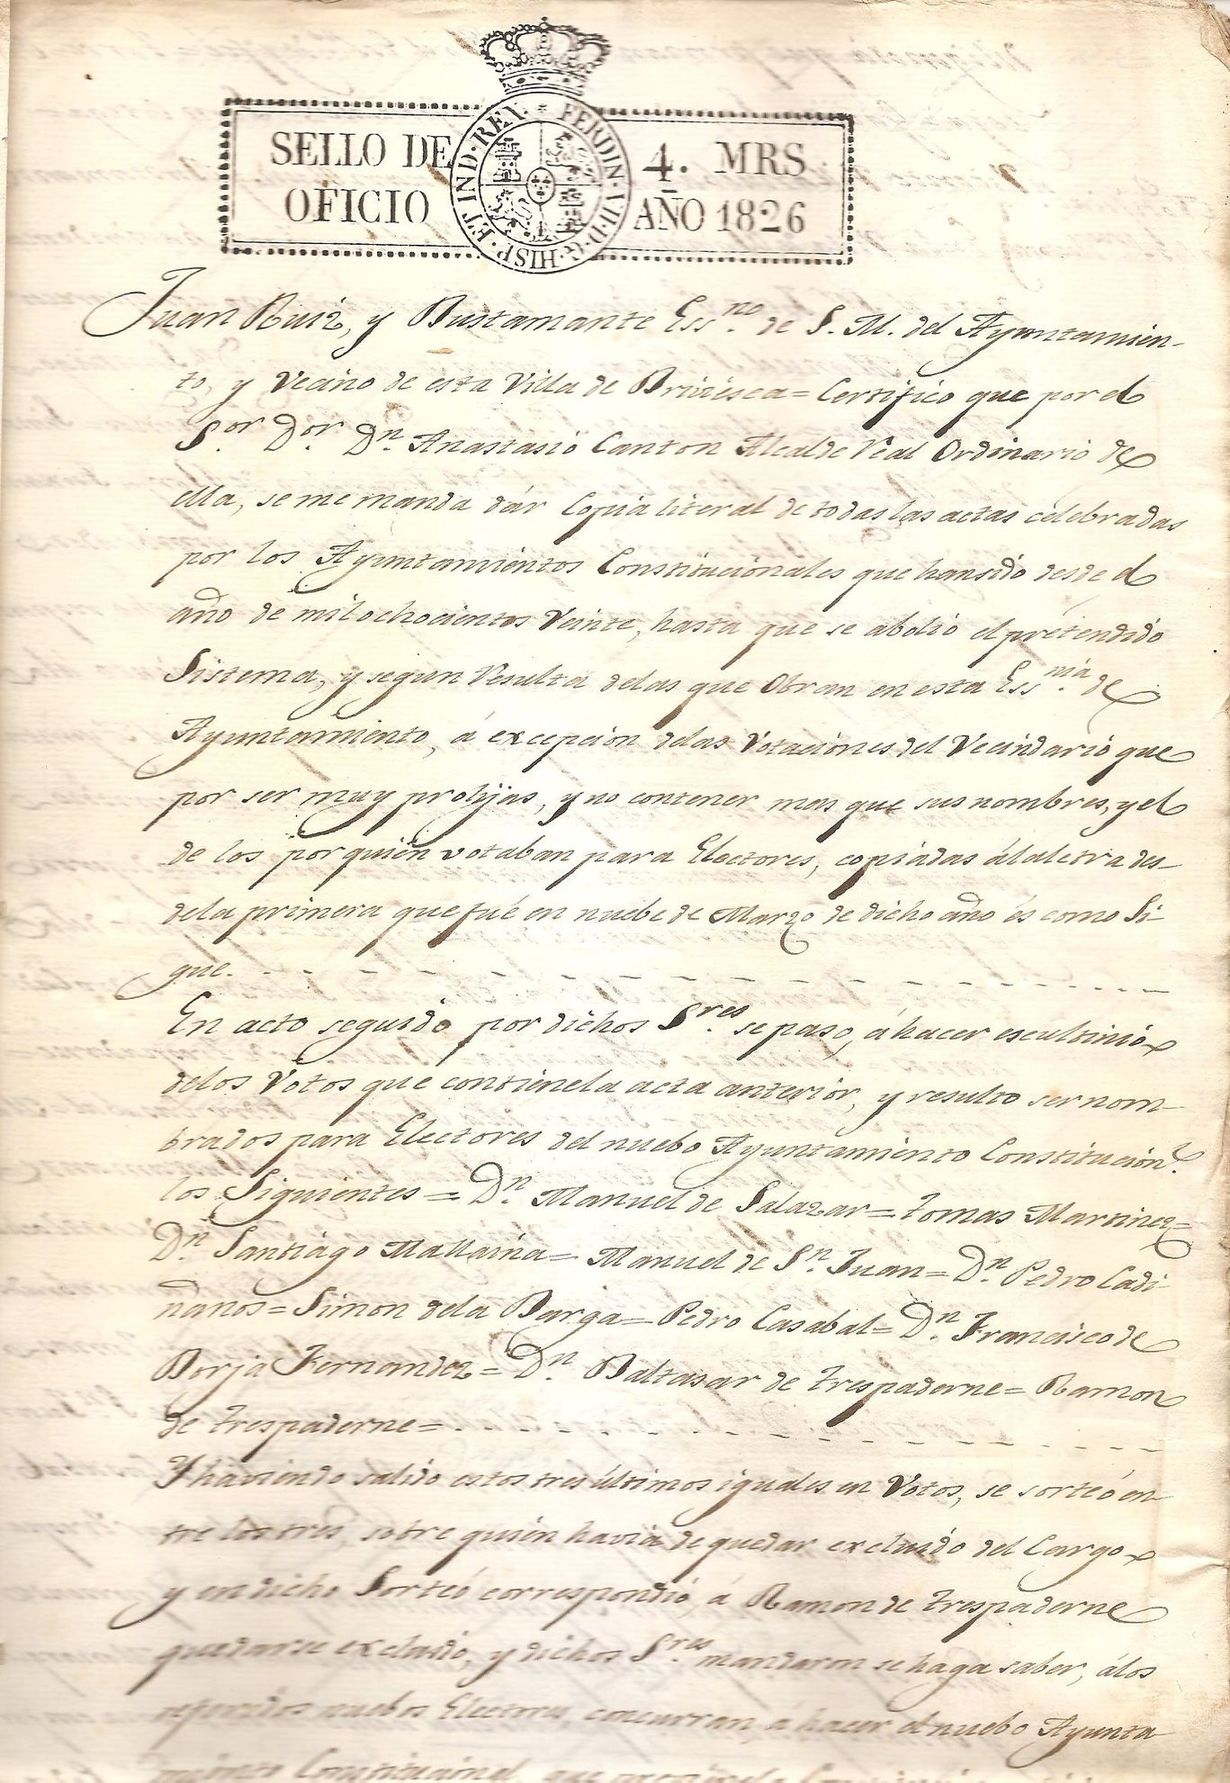 SELLO DE
OFICIO
4. MRS
AÑO 1826
FERDIN·VII·D·G·HISP·ET IND·REX·
Juan Ruiz, y Bustamante Essno. de S. M. del Ayuntamien-
to, y Vecino de esta Villa de Briviesca = Certifico que por el
Sor. Dor. Dn. Anastasio Canton Alcalde Real Ordinario de
ella, se me manda dár Copia literal de todas las actas celebradas
por los Ayuntamientos Constitucionales que han sido desde el
año de mil ochocientos Veinte, hasta que se abolio el pretendido
Sistema, y segun Resulta de las que Obran en esta Essnia. de
Ayuntamiento, á excepcion de las Votaciones del Vecindario que
por ser muy prolijas, y no contener mas que sus nombres, y el
de los por quien votaban para Electores, copiadas á la letra des-
de la primera que fué en nuebe de Marzo de dicho año és como Si-
gue.
En acto seguido por dichos Sres. se paso, á hacer escultinio
de los Votos que contiene la acta anterior, y resulto ser nom-
brados para Electores del nuebo Ayuntamiento Constitucionl.
los Siguientes = Dn. Manuel de Salazar = Tomas Martinez =
Dn. Santiago Mallaina = Manuel de Sn. Juan = Dn. Pedro Cadi
ñanos = Simon de la Barga = Pedro Casabal = Dn. Francisco de
Borja Fernandez = Dn. Baltasar de Trespaderne = Ramon
de Trespaderne =
Y haviendo salido estos tres últimos iguales en Votos, se sorteó en-
tre los tres, sobre quien havia de quedar excluido del Cargo
y en dicho Sorteó correspondió, á Ramon de Trespaderne
quedarse excluido, y dichos Sres. mandaron se haga saber, á los
referidos nuebos Electores, concurran, á hacer el nuebo Ayunta
miento Constitucional, que